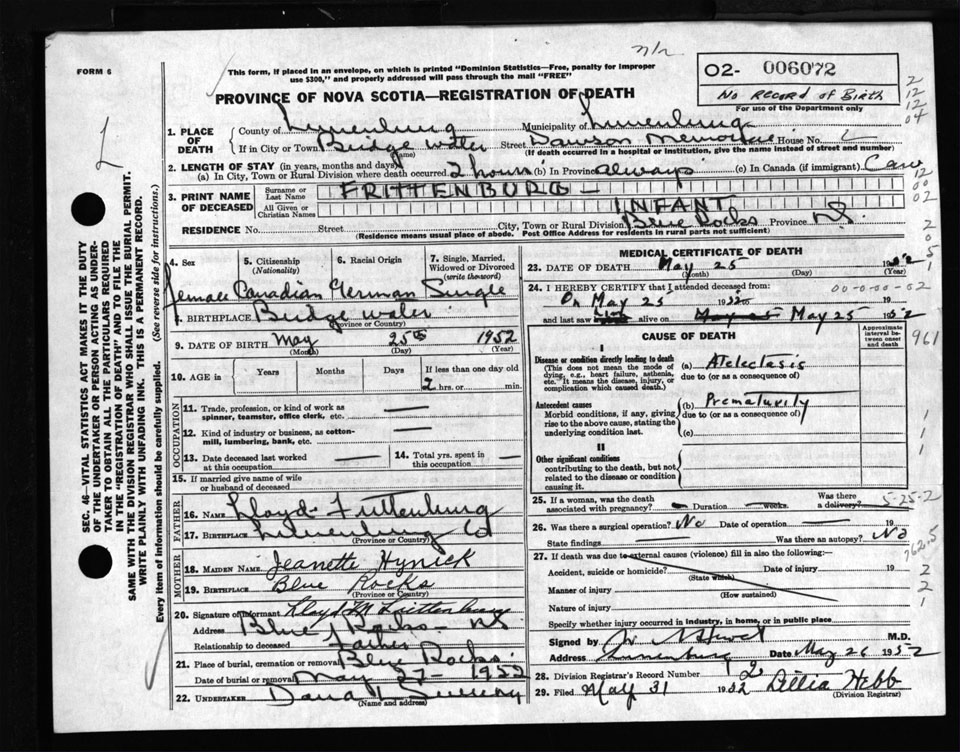 n/r
FORM 6
This form, if placed in an envelope, on which is printed "Dominion Statistics—Free, penalty for improper
use $300," and properly addressed will pass through the mail "FREE"
02- 006072
No Record of Birth
For use of the Department only
PROVINCE OF NOVA SCOTIA—REGISTRATION OF DEATH
1. PLACE OF DEATH
County of Lunenburg Municipality of Lunenburg
If in City or Town Bridgewater (Name) Street Memorial House No.
(If death occurred in a hospital or institution, give the name instead of street and number)
2. LENGTH OF STAY (in years, months and days)
(a) In City, Town or Rural Division where death occurred 2 hours (b) In Province always (c) In Canada (if immigrant)
3. PRINT NAME OF DECEASED
Surname or Last Name FRITTENBURG—
All Given or Christian Names INFANT
RESIDENCE No. Street City, Town or Rural Division Blue Rocks Province N.S.
(Residence means usual place of abode. Post Office Address for residents in rural parts not sufficient)
4. Sex Female
5. Citizenship (Nationality) Canadian
6. Racial Origin German
7. Single, Married, Widowed or Divorced (write the word) Single
8. BIRTHPLACE Bridgewater
(Province or Country)
9. DATE OF BIRTH May 25th 1952
(Month) (Day) (Year)
10. AGE in Years Months Days If less than one day old
2 hrs. or min.
OCCUPATION
11. Trade, profession, or kind of work as spinner, teamster, office clerk, etc. —
12. Kind of industry or business, as cotton-mill, lumbering, bank, etc. —
13. Date deceased last worked at this occupation — 14. Total yrs. spent in this occupation —
15. If married give name of wife or husband of deceased —
FATHER
16. NAME Lloyd Frittenburg
17. BIRTHPLACE Lunenburg Co
(Province or Country)
MOTHER
18. MAIDEN NAME Jeanette Hynick
19. BIRTHPLACE Blue Rocks
(Province or Country)
20. Signature of informant Lloyd M Frittenburg
Address Blue Rocks— NS
Relationship to deceased Father
21. Place of burial, cremation or removal Blue Rocks
Date of burial or removal May 27— 1952
22. UNDERTAKER Dana L Sweeny
(Name and address)
MEDICAL CERTIFICATE OF DEATH
23. DATE OF DEATH May 25 1952
(Month) (Day) (Year)
24. I HEREBY CERTIFY that I attended deceased from:
On May 25 1952 to
and last saw alive on May 25 1952
CAUSE OF DEATH
Approximate interval between onset and death
I
Disease or condition directly leading to death
(This does not mean the mode of dying, e.g., heart failure, asthenia, etc. It means the disease, injury, or complication which caused death.)
(a) Atelectasis
due to (or as a consequence of)
Antecedent causes
Morbid conditions, if any, giving rise to the above cause, stating the underlying condition last.
(b) Prematurity
due to (or as a consequence of)
(c)
II
Other significant conditions
contributing to the death, but not related to the disease or condition causing it.
25. If a woman, was the death associated with pregnancy? — Duration weeks. Was there a delivery?
26. Was there a surgical operation? No Date of operation — 19
State findings Was there an autopsy? No
27. If death was due to external causes (violence) fill in also the following:—
Accident, suicide or homicide? (State which) Date of injury 19
Manner of injury (How sustained)
Nature of injury
Specify whether injury occurred in industry, in home, or in public place
Signed by M.D.
Address Lunenburg Date May 26 1952
28. Division Registrar's Record Number 2
29. Filed May 31 1952 Dillia Hebb
(Division Registrar)
SEC. 46—VITAL STATISTICS ACT MAKES IT THE DUTY
OF THE UNDERTAKER OR PERSON ACTING AS UNDER-
TAKER TO OBTAIN ALL THE PARTICULARS REQUIRED
IN THE "REGISTRATION OF DEATH" AND TO FILE THE
SAME WITH THE DIVISION REGISTRAR WHO SHALL ISSUE THE BURIAL PERMIT.
WRITE PLAINLY WITH UNFADING INK. THIS IS A PERMANENT RECORD.
Every item of information should be carefully supplied. (See reverse side for instructions.)
2
12
12
04
12
00
02
2
0
5
1
00-0-00-02
961
1
1
5-25-2
762.5
2
2
1